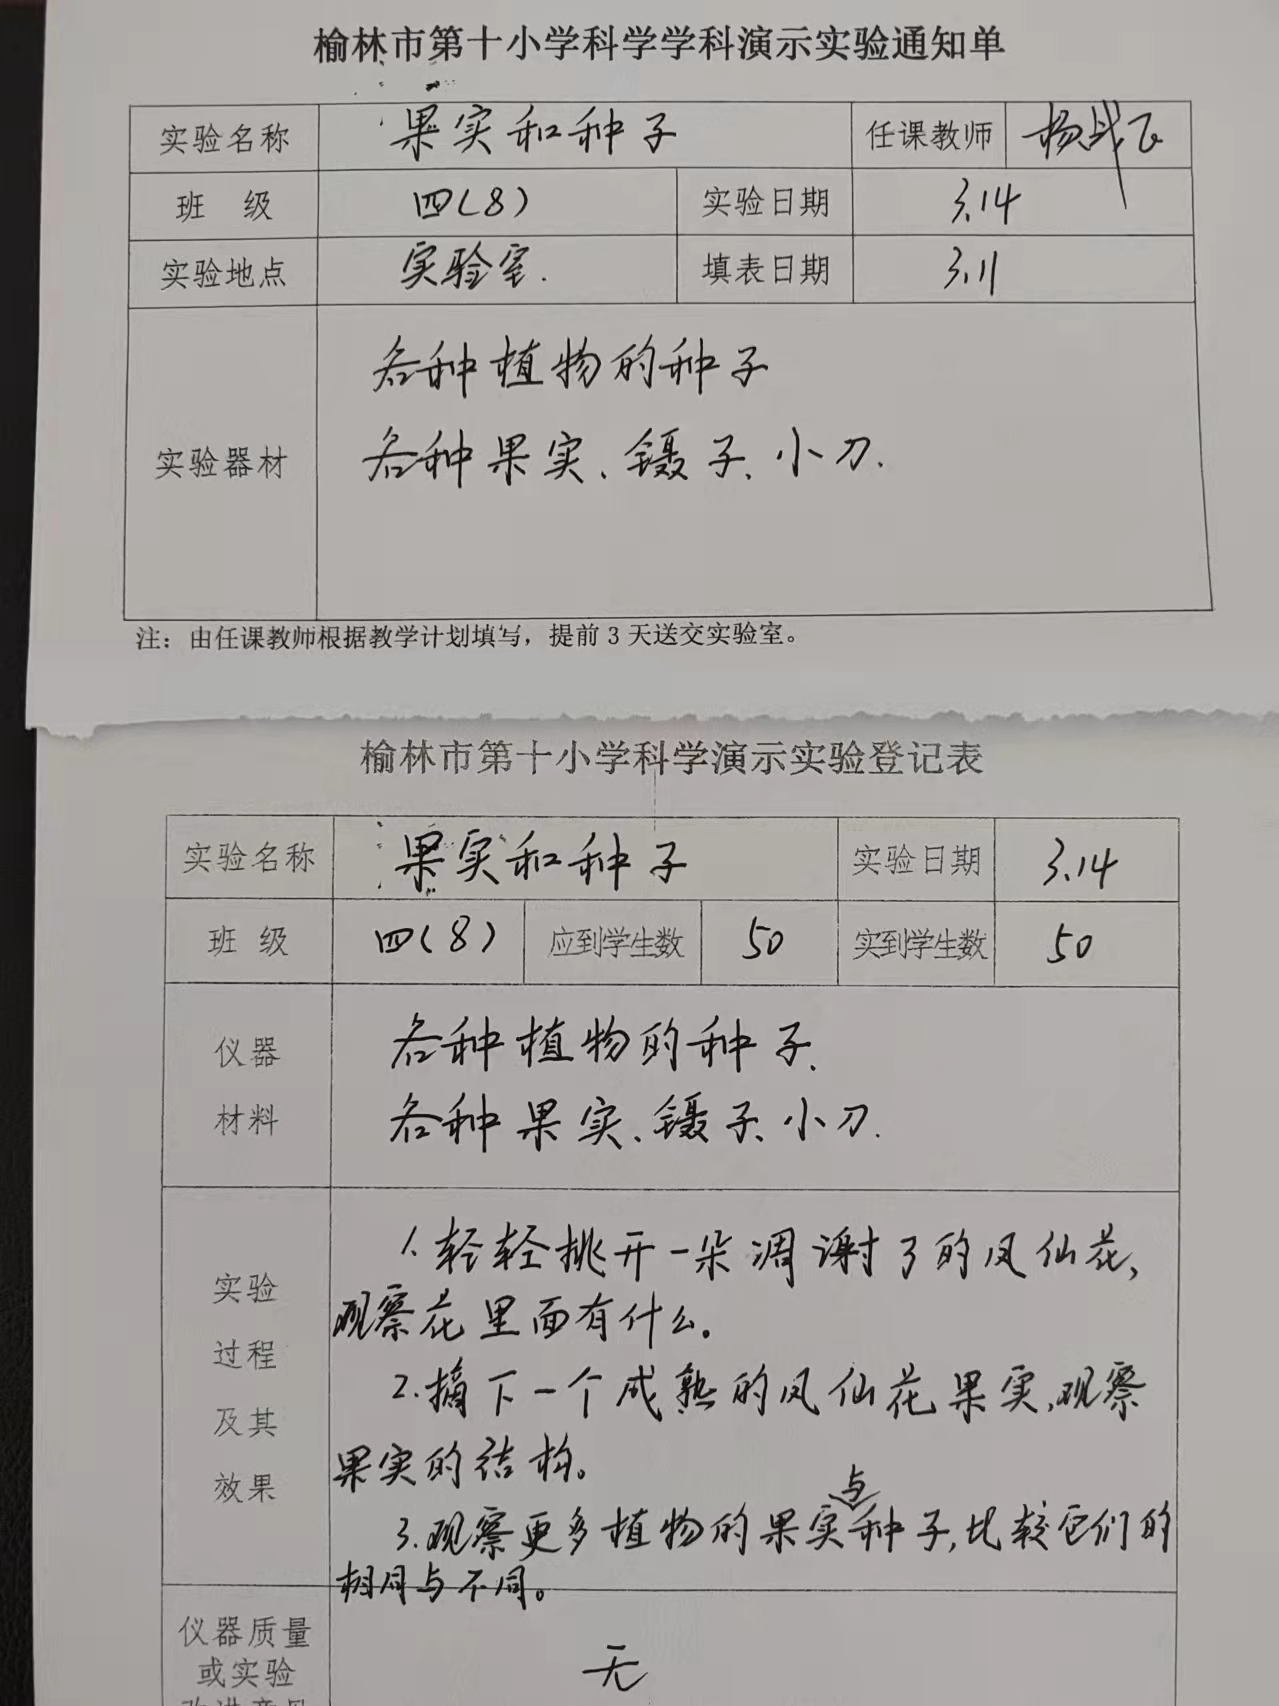 榆林市第十小学科学学科演示实验通知单
实验名称 果实和种子 任课教师
班 级 四(8) 实验日期 3.14
实验地点 实验室. 填表日期 3.11
各种植物的种子
实验器材 各种果实、镊子、小刀.
注：由任课教师根据教学计划填写，提前3天送交实验室。
榆林市第十小学科学演示实验登记表
实验名称 果实和种子 实验日期 3.14
班 级 四(8) 应到学生数 50 实到学生数 50
仪器 各种植物的种子、
材料 各种果实、镊子、小刀.
1.轻轻挑开一朵凋谢了的凤仙花,
实验 观察花里面有什么。
过程 2.摘下一个成熟的凤仙花果实,观察
及其 果实的结构。
效果 3.观察更多植物的果实与种子,比较它们的
相同与不同。
仪器质量
或实验 无
改进意见